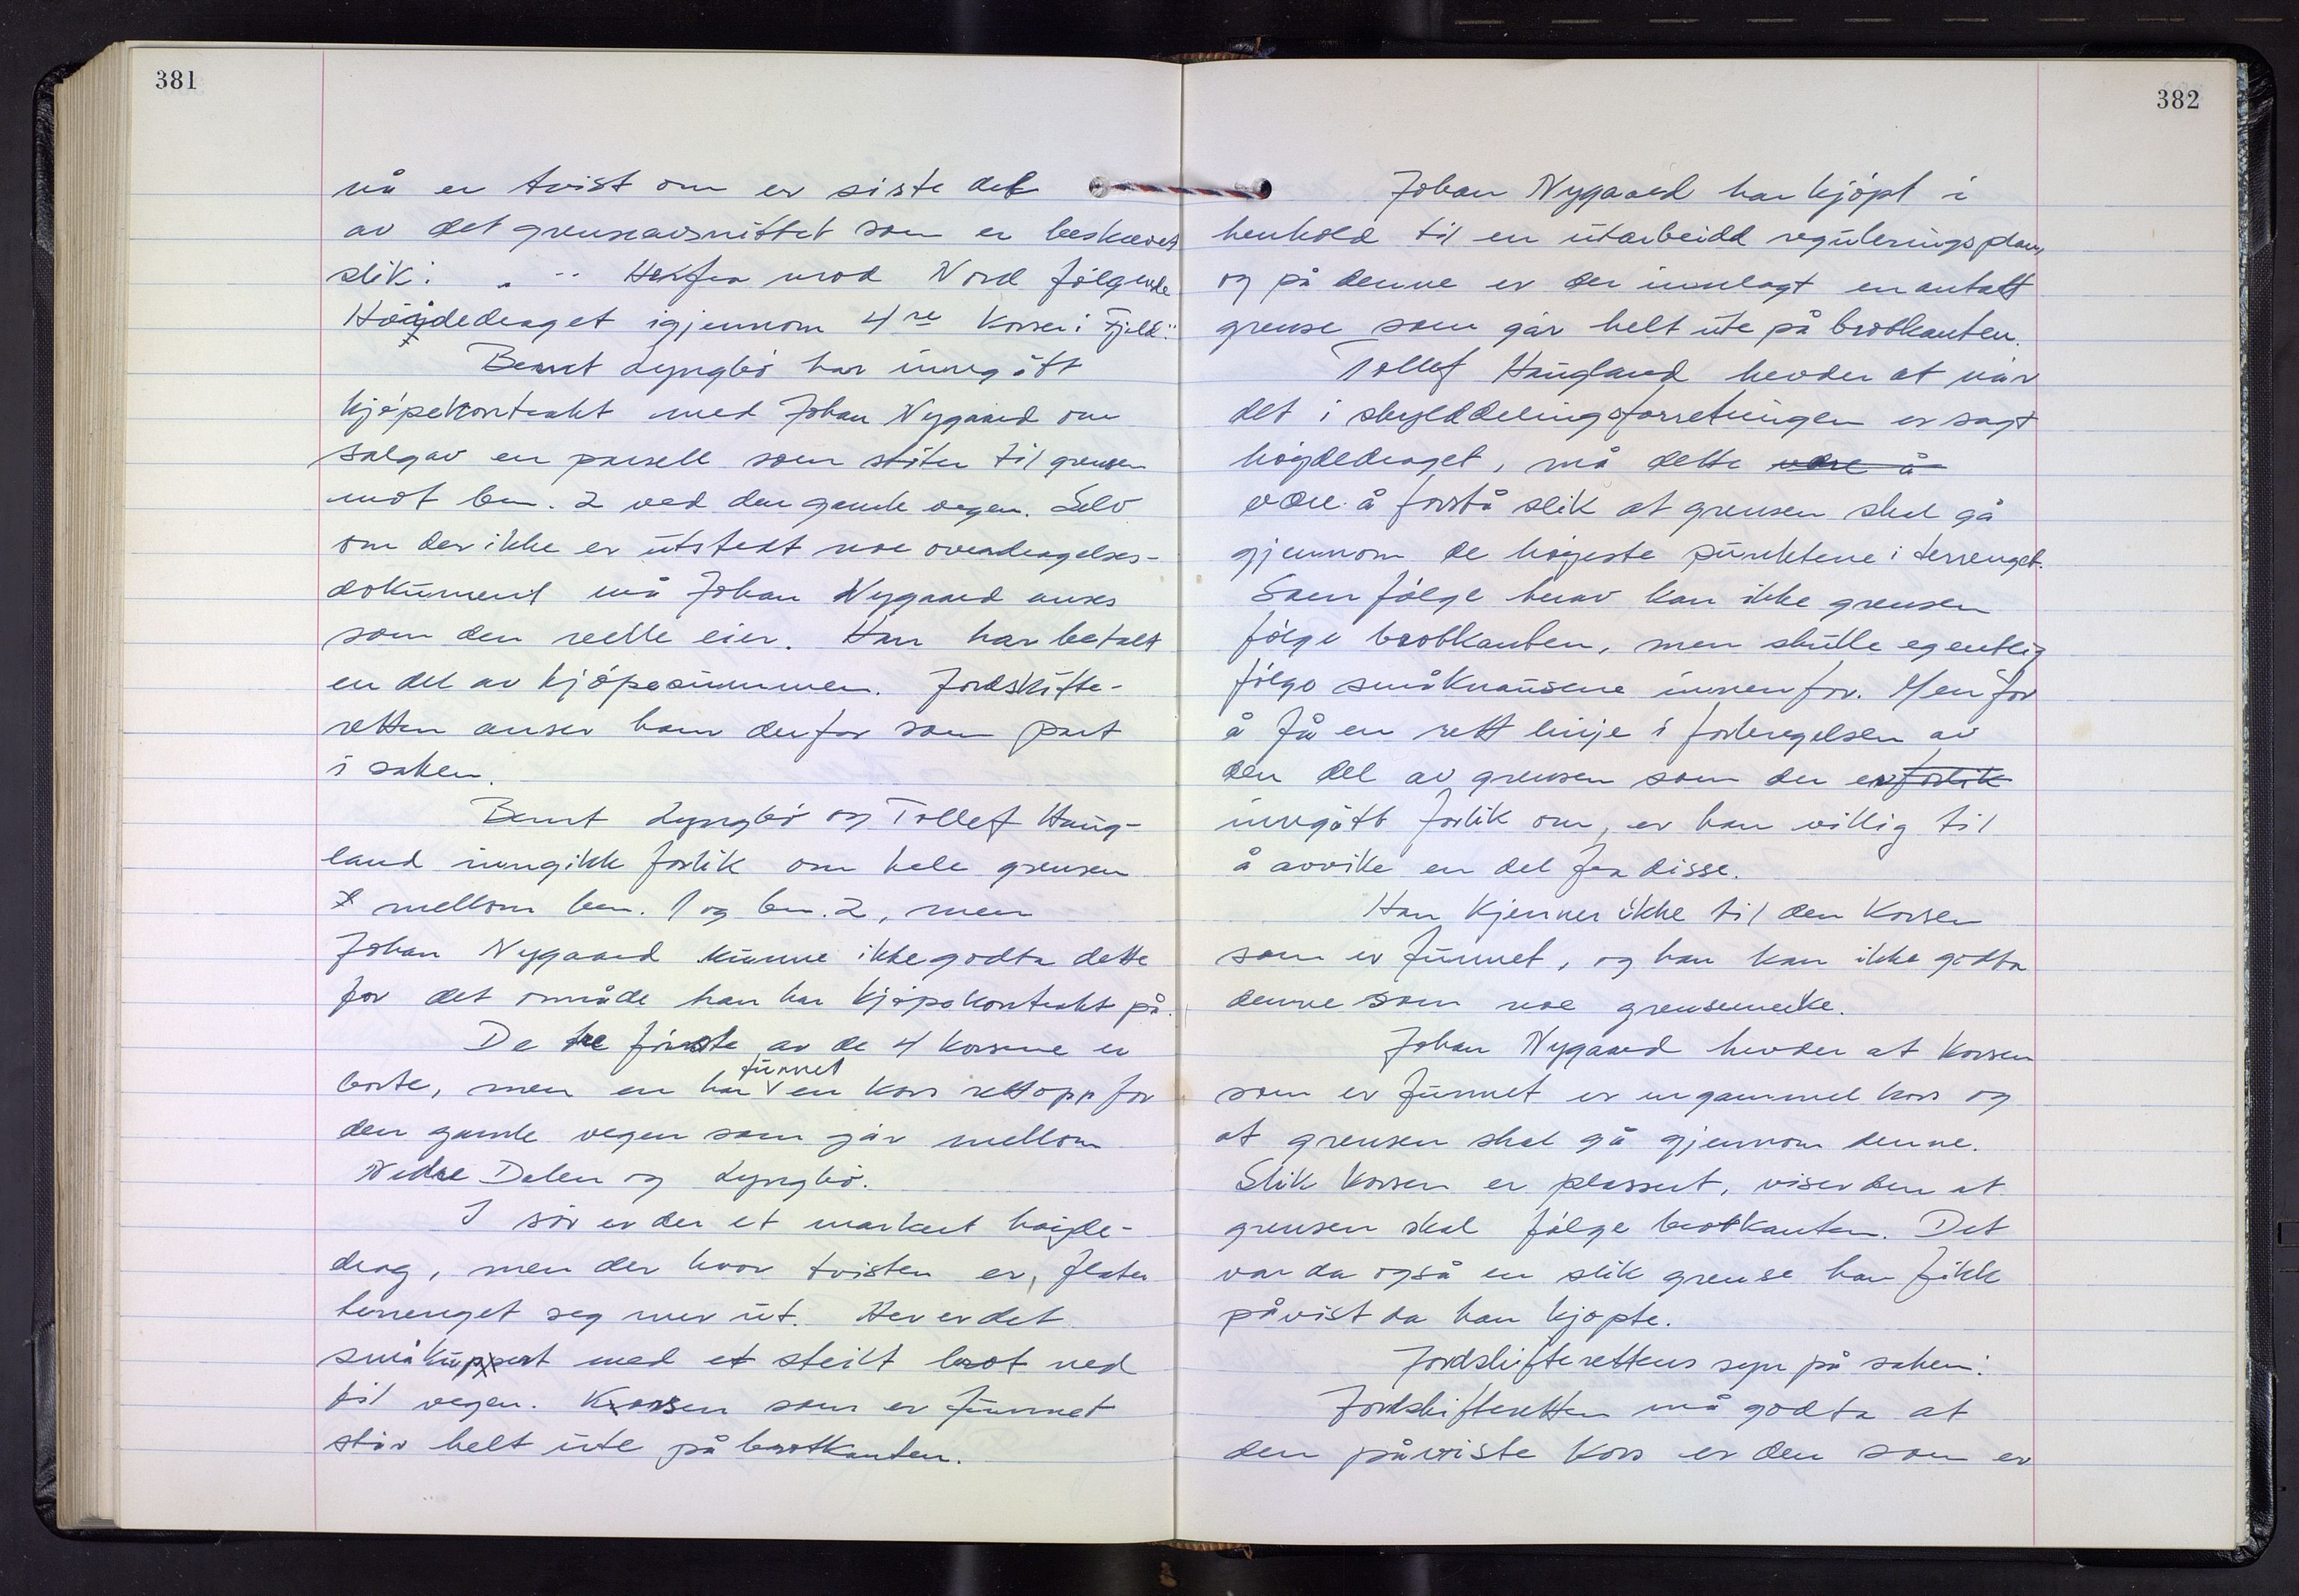 381
nå er tvist om er siste del
av det grenseavsnittet som er beskrevet
slik: " -- Herfra mod Nord følgende
Høidedraget igjennom 4re Korser i Fjeld."
Bernt Lyngbø har inngått
kjøpekontrakt med Johan Nygaard om
salg av en parsell som støter til grensen
mot bn. 2 ved den gamle vegen. Selv
om der ikke er utstedt noe overdragelses-
dokument må Johan Nygaard anses
som den reelle eier. Han har betalt
en del av kjøpesummen. Jordskifte-
retten anser ham derfor som part
i saken.
Bernt Lyngbø og Tollef Haug-
land inngikk forlik om hele grensen
mellom bn. 1 og bn. 2, men
Johan Nygaard kunne ikke godta dette
for det område han har kjøpekontrakt på.
De tre første av de 4 korsene er
funnet
borte, men en har en kors rett opp for
den gamle vegen som går mellom
Nedre Dalen og Lyngbø.
I sør er der et markert høgde-
drag, men der hvor tvisten er, flater
terrenget seg mer ut. Her er det
småkupert med et steilt brot ned
til vegen. Korsen som er funnet
står helt ute på brotkanten.
382
Johan Nygaard har kjøpt i
henhold til en utarbeidd reguleringsplan,
og på denne er der innlagt en antatt
grense som går helt ute på brotkanten.
Tollef Haugland hevder at når
det i skylddelingsforretningen er sagt
høgdedraget, må dette være å
være å forstå slik at grensen skal gå
gjennom de høgeste punktene i terrenget.
Som følge herav kan ikke grensen
følge brotkanten, men skulle egentlig
følge småknausene innenfor. Men for
å få en rett linje i forlengelsen av
den del av grensen som der er forlik
inngått forlik om, er han villig til
å avvike en del fra disse.
Han kjenner ikke til den korsen
som er funnet, og han kan ikke godta
denne som noe grensemerke.
Johan Nygaard hevder at korsen
som er funnet er en gammel kors og
at grensen skal gå gjennom denne.
Slik korsen er plassert, viser den at
grensen skal følge brotkanten. Det
var da også en slik grense han fikk
påvist da han kjøpte.
Jordskifterettens syn på saken:
Jordskifteretten må godta at
den påviste kors er den som er